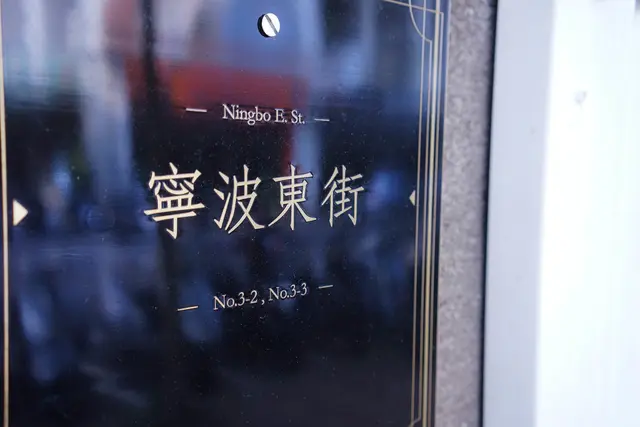 — Ningbo E. St. —
寧波東街
— No.3-2 , No.3-3 —